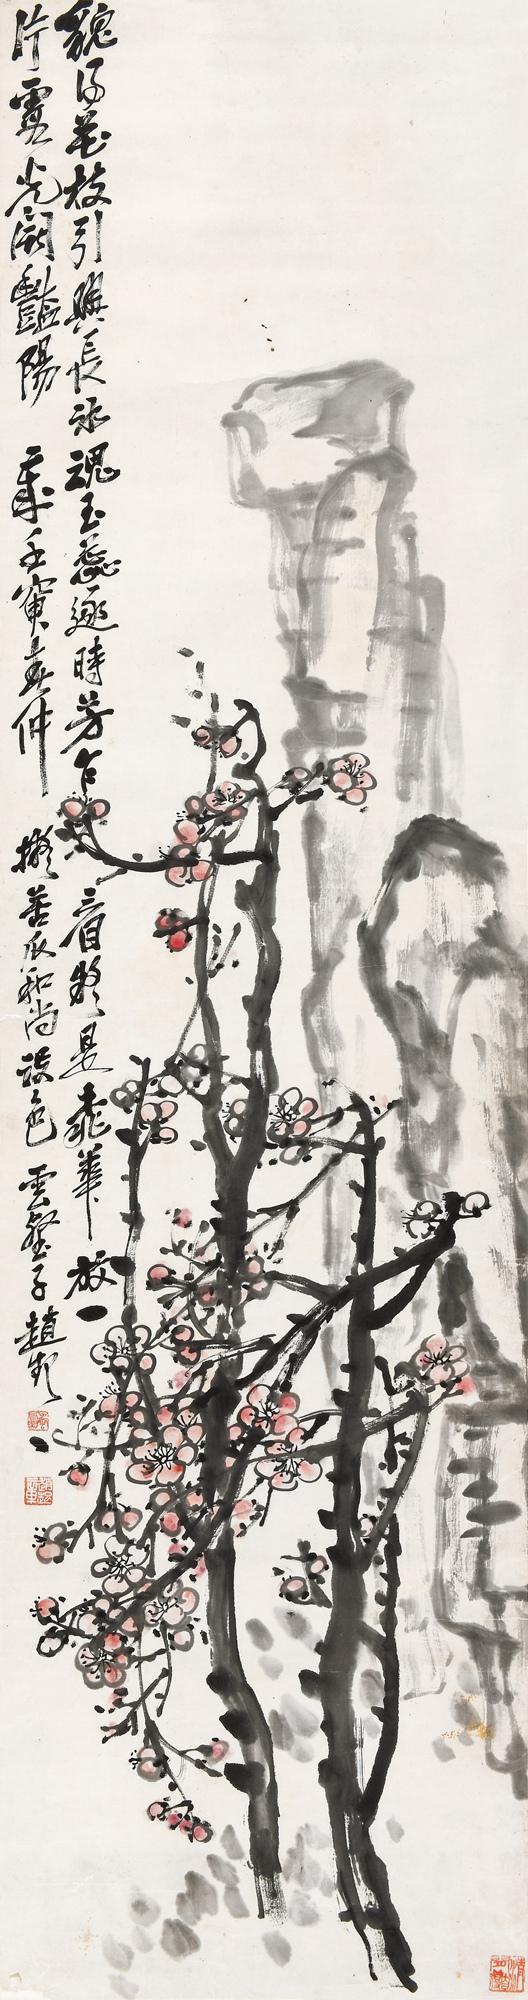 貌得花枝引興長冰魂玉蕊逐時芳乍看疑是飛華放一
片靈光閣豔陽 歲壬寅春仲 擬苦瓜和尚設色 雲壑子趙起